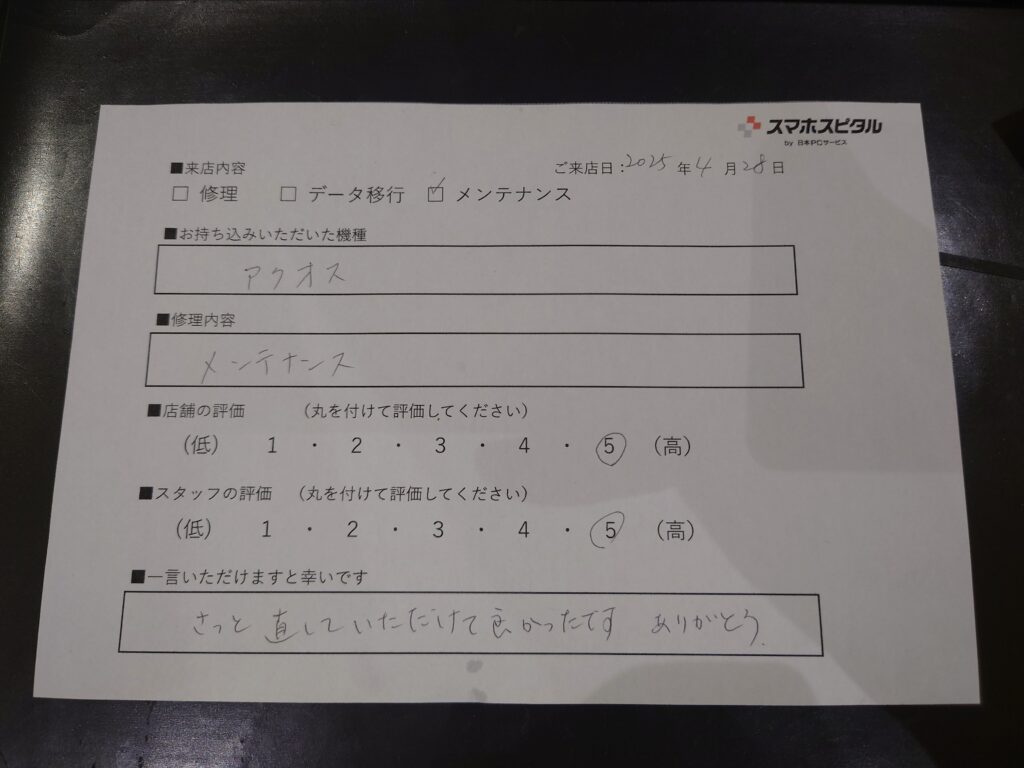 スマホスピタル
by 日本PCサービス
■来店内容 ご来店日:2025年4月28日
□ 修理 □ データ移行 ☑ メンテナンス
■お持ち込みいただいた機種
アクオス
■修理内容
メンテナンス
■店舗の評価 (丸を付けて評価してください)
(低) 1 ・ 2 ・ 3 ・ 4 ・ 5 (高)
■スタッフの評価 (丸を付けて評価してください)
(低) 1 ・ 2 ・ 3 ・ 4 ・ 5 (高)
■一言いただけますと幸いです
さっと直していただけて良かったです ありがとう.